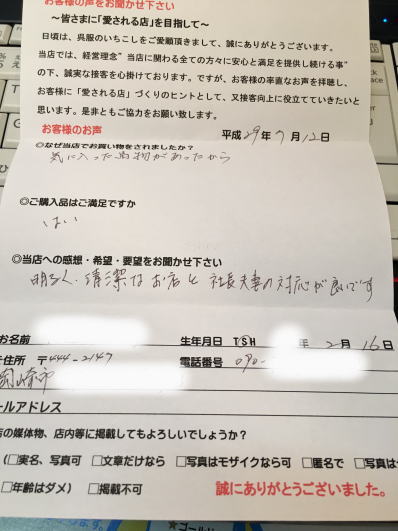 お客様の声をお聞かせ下さい
～皆さまに「愛される店」を目指して～
日頃は、呉服のいちこしをご愛顧頂きまして、誠にありがとうございます。
当店では、経営理念”当店に関わる全ての方々に安心と満足を提供し続ける事”
の下、誠実な接客を心掛けております。ですが、お客様の率直なお声を拝聴し、
お客様に「愛される店」づくりのヒントとして、又接客向上に役立てていきたいと
思います。是非ともご協力をお願い致します。
お客様のお声
平成29年7月12日
◎なぜ当店でお買い物をされましたか?
気に入った品物があったから
◎ご購入品はご満足ですか
はい
◎当店への感想・希望・要望をお聞かせ下さい
明るく、清潔なお店と社長夫妻の対応が良いです
お名前
生年月日 TSH 年 2月16日
住所 〒444-2147
電話番号 090-
岡崎市
ールアドレス
店の媒体物、店内等に掲載してもよろしいでしょうか?
(□実名、写真可 □文章だけなら □写真はモザイクなら可 □匿名で □写真は
□年齢はダメ) □掲載不可
誠にありがとうございました。